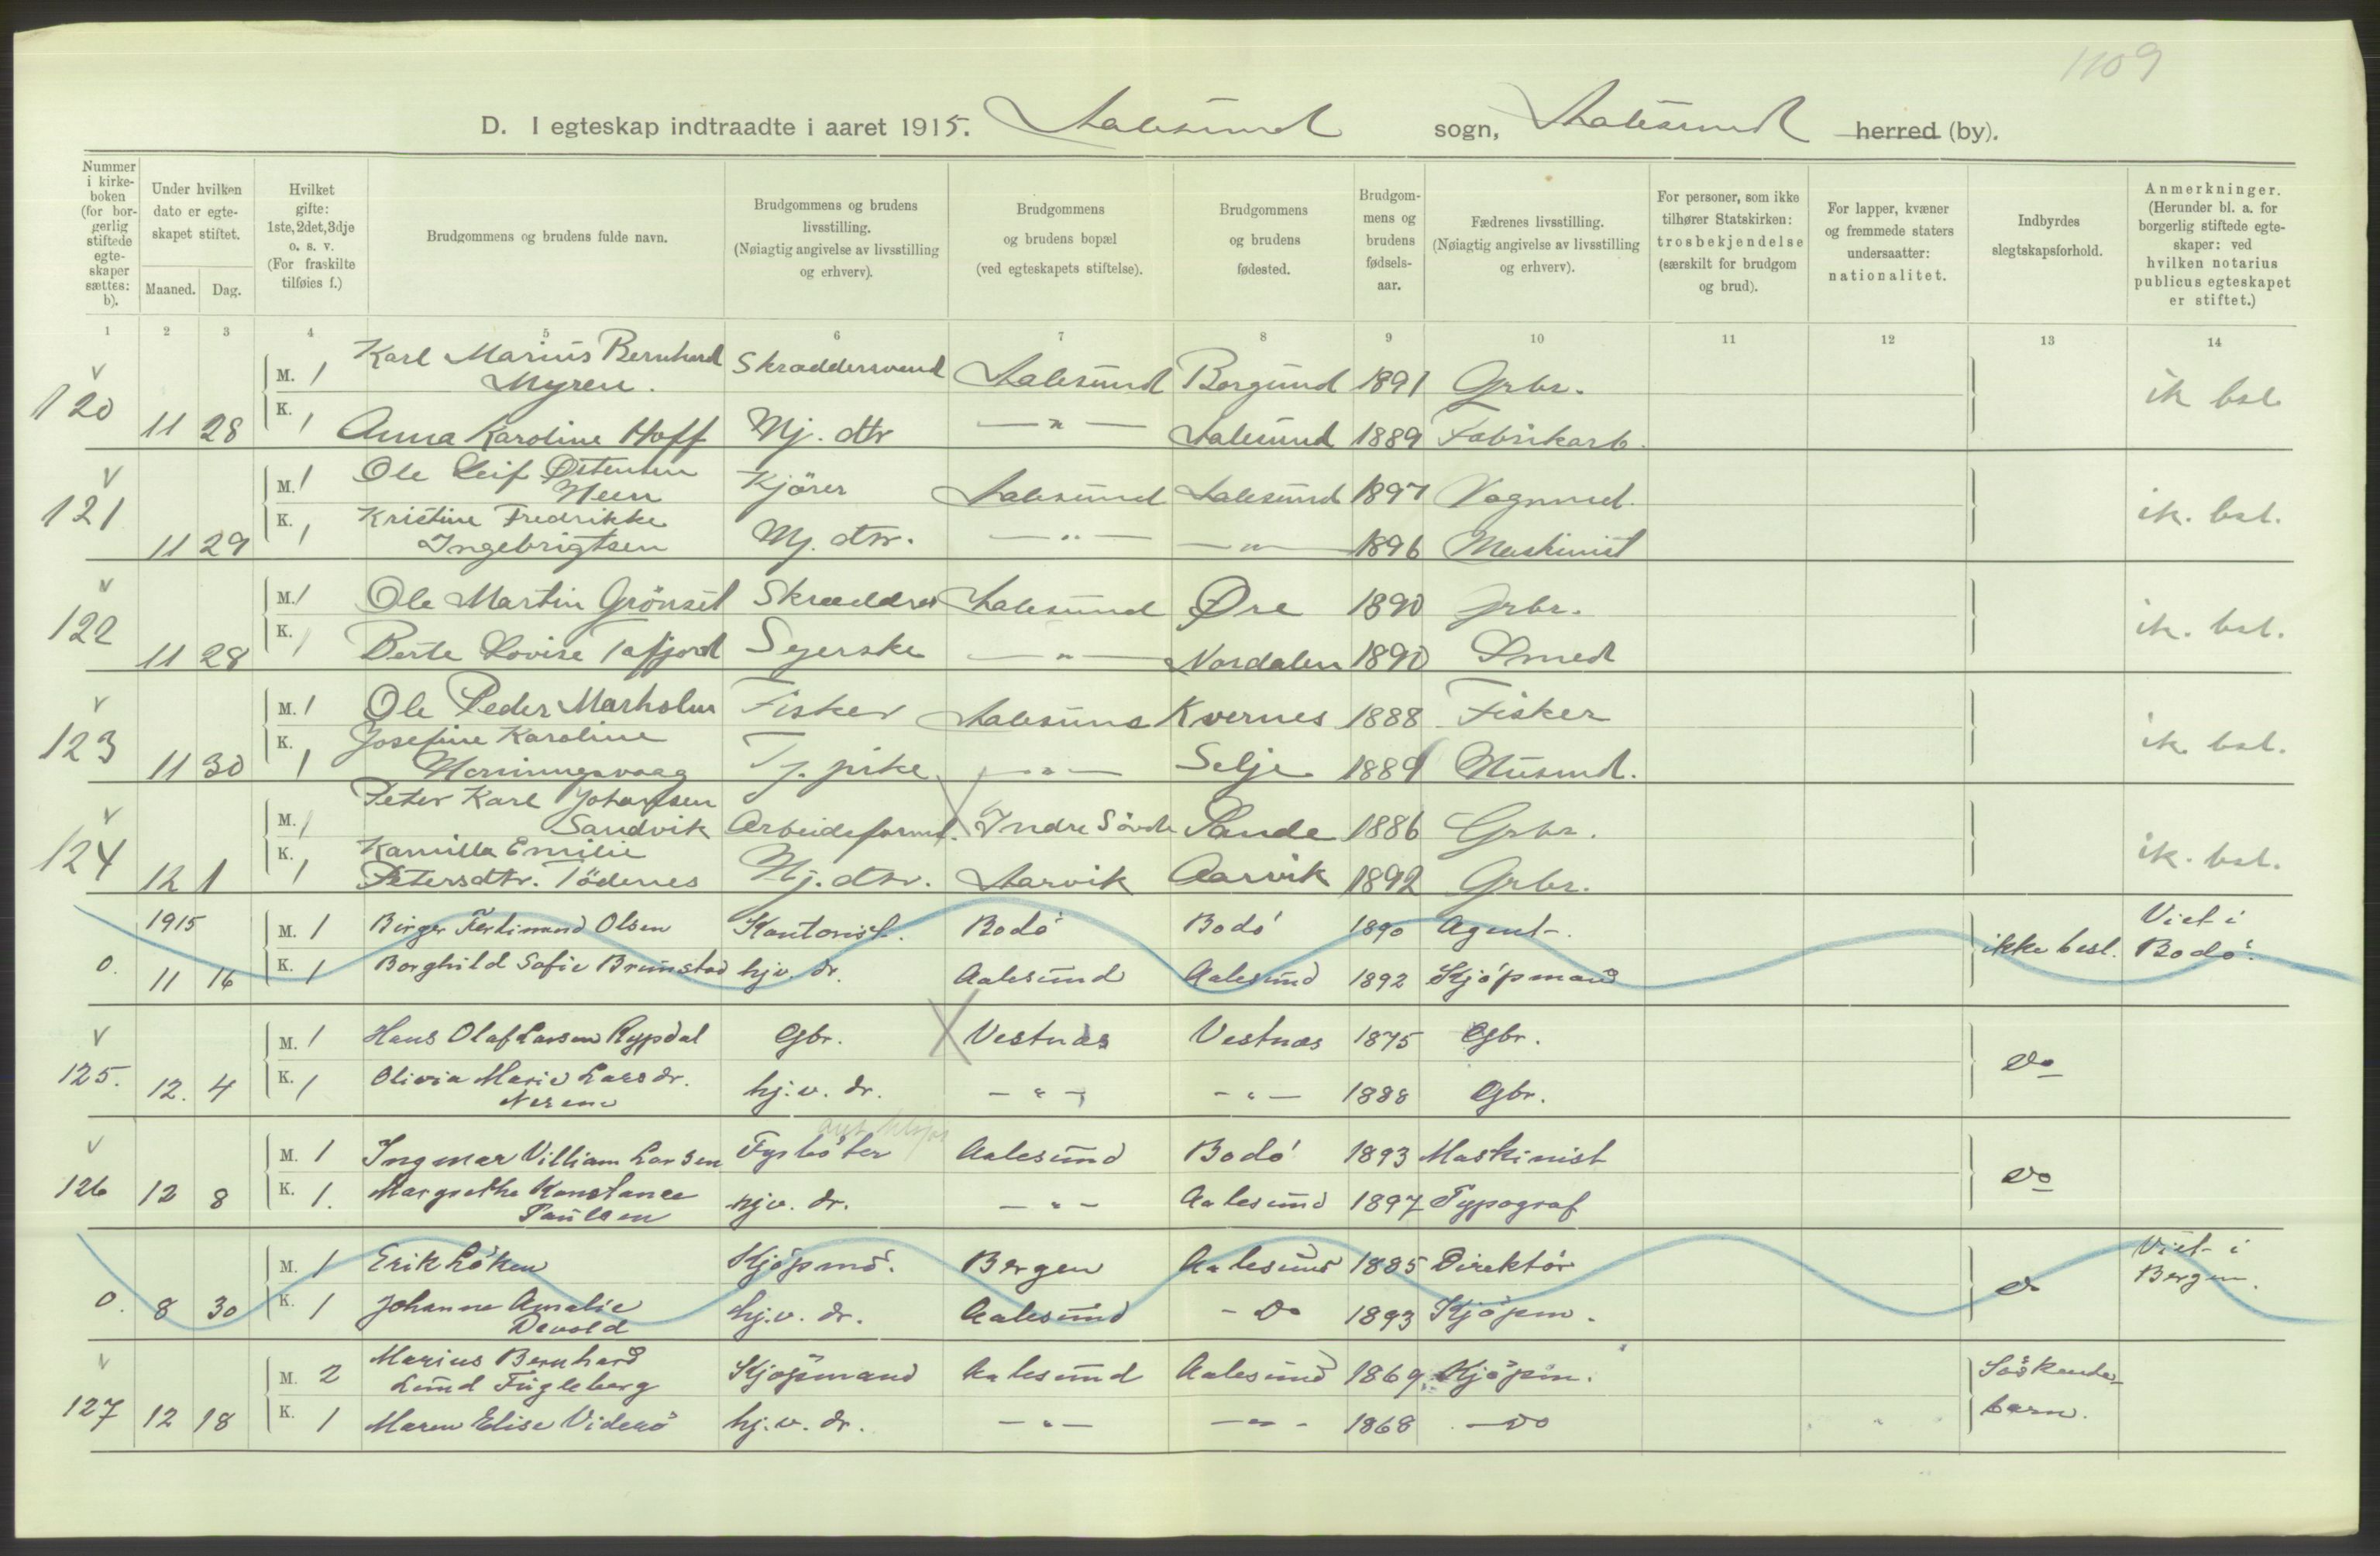 1109
D. I egteskap indtraadte i aaret 1915. Aalesund sogn, Aalesund herred (by).
Nummer i kirkeboken (for borgerlig stiftede egteskaper sættes: b).
Under hvilken dato er egteskapet stiftet.
Maaned. Dag.
Hvilket gifte: 1ste, 2det, 3dje o. s. v. (For fraskilte tilføies f.)
Brudgommens og brudens fulde navn.
Brudgommens og brudens livsstilling. (Nøiagtig angivelse av livsstilling og erhverv).
Brudgommens og brudens bopæl (ved egteskapets stiftelse).
Brudgommens og brudens fødested.
Brudgommens og brudens fødselsaar.
Fædrenes livsstilling. (Nøiagtig angivelse av livsstilling og erhverv).
For personer, som ikke tilhører Statskirken: trosbekjendelse (særskilt for brudgom og brud).
For lapper, kvæner og fremmede staters undersaatter: nationalitet.
Indbyrdes slegtskapsforhold.
Anmerkninger. (Herunder bl. a. for borgerlig stiftede egteskaper: ved hvilken notarius publicus egteskapet er stiftet.)
1 2 3 4 5 6 7 8 9 10 11 12 13 14
120 11 28 M. 1 Karl Marius Bernhard Myren. Skræddersvend Aalesund Borgund 1891 Grbr. ik bsl.
K. 1 Anna Karoline Hoff Hj. dtr — " — Aalesund 1889 Fabrikarb.
121 11 29 M. 1 Ole Leif Østensen Neen Kjörer Aalesund Aalesund 1897 Vognmd. ik. bsl.
K. 1 Kristine Fredrikke Ingebrigtsen Hj. dtr. — " — — " — 1896 Maskinist
122 11 28 M. 1 Ole Martin Grönset Skrædder Aalesund Øre 1890 Grbr. ik. bsl.
K. 1 Berte Lovise Tafjord Syerske — " — Nordalen 1890 Smed
123 11 30 M. 1 Ole Peder Marholm Fisker Aalesund Kvernes 1888 Fisker ik. bsl.
K. 1 Josefine Karoline Honningsvaag Tj. pike — " — Selje 1889 Husmd.
124 12 1 M. 1 Peter Karl Johansen Sandvik Arbeidsformd. Indre Sövde Sande 1886 Grbr. ik. bsl.
K. 1 Kamilla Emilie Petersdtr. Tödenes Hj. dtr. Aarvik Aarvik 1892 Grbr.
1915
0. 11 16 M. 1 Birger Ferdinand Olsen Kontorist. Bodó Bodó 1890 Agent. ikke besl. Viet i Bodó.
K. 1 Borghild Sofie Brunstad hjv. dr. Aalesund Aalesund 1892 Kjópmand
125. 12. 4 M. 1 Hans Olaf Larsen Rypdal Gbr. Vestnæs Vestnæs 1875 Gbr. Do
K. 1 Olivia Marie Larsdr. Nerem hj. v. dr. — " — — " — 1888 Gbr.
126 12 8 M. 1 Ingmar William Larsen Fyrbóter Aalesund Bodó 1893 Maskinist Do
K. 1. Margrethe Konstance Paulsen hjv. dr. — " — Aalesund 1897 Typograf
0. 8 30 M. 1 Erik Lóken Kjópmd. Bergen Aalesund 1885 Direktór Do Viet i Bergen.
K. 1 Johanne Amalie Devold hj. v. dr. Aalesund — Do 1893 Kjópm.
127 12 18 M. 2 Marius Bernhard Lund Fugleberg Kjópmand Aalesund Aalesund 1869 Kjópm. Sóskendebarn.
K. 1 Maren Elise Videró hj. v. dr. — " — — " — 1868 — Do